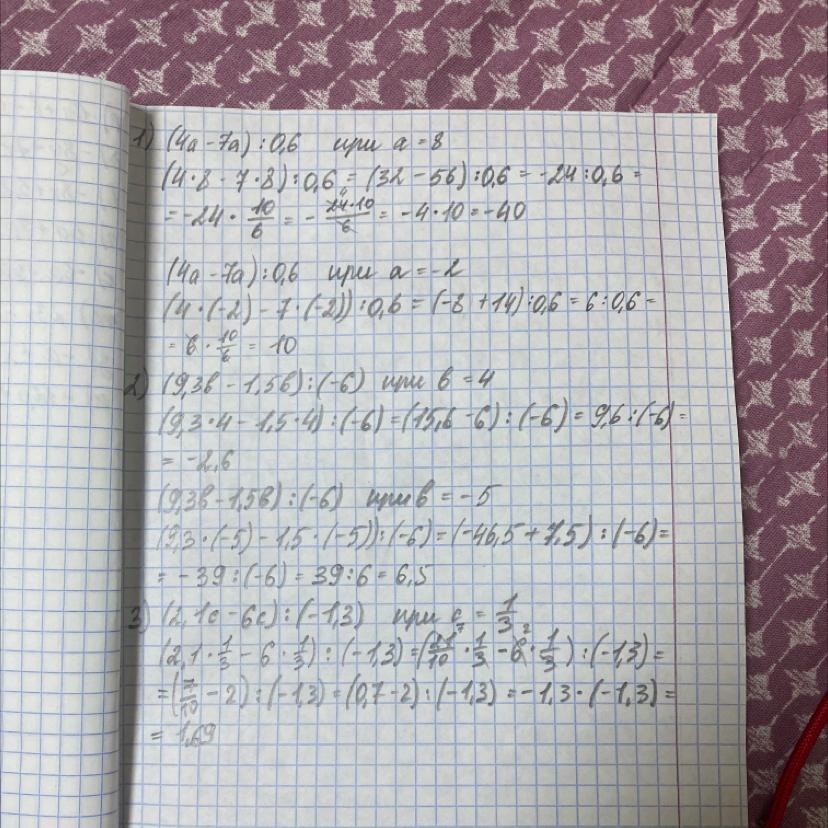 1) (4a - 7a) : 0,6 при a = 8
(4 · 8 - 7 · 8) : 0,6 = (32 - 56) : 0,6 = -24 : 0,6 =
= -24 · 10/6 = - 24·10/6 = -4 · 10 = -40
(4a - 7a) : 0,6 при a = -2
(4 · (-2) - 7 · (-2)) : 0,6 = (-8 + 14) : 0,6 = 6 : 0,6 =
= 6 · 10/6 = 10
2) (9,3в - 1,5в) : (-6) при в = 4
(9,3 · 4 - 1,5 · 4) : (-6) = (15,6 - 6) : (-6) = 9,6 : (-6) =
= -2,6
(9,3в - 1,5в) : (-6) при в = -5
(9,3 · (-5) - 1,5 · (-5)) : (-6) = (-46,5 + 7,5) : (-6) =
= -39 : (-6) = 39 : 6 = 6,5
3) (2,1c - 6c) : (-1,3) при c = 1/3
(2,1 · 1/3 - 6 · 1/3) : (-1,3) = (21/10 · 1/3 - 6 · 1/3) : (-1,3) =
= (7/10 - 2) : (-1,3) = (0,7 - 2) : (-1,3) = -1,3 · (-1,3) =
= 1,69